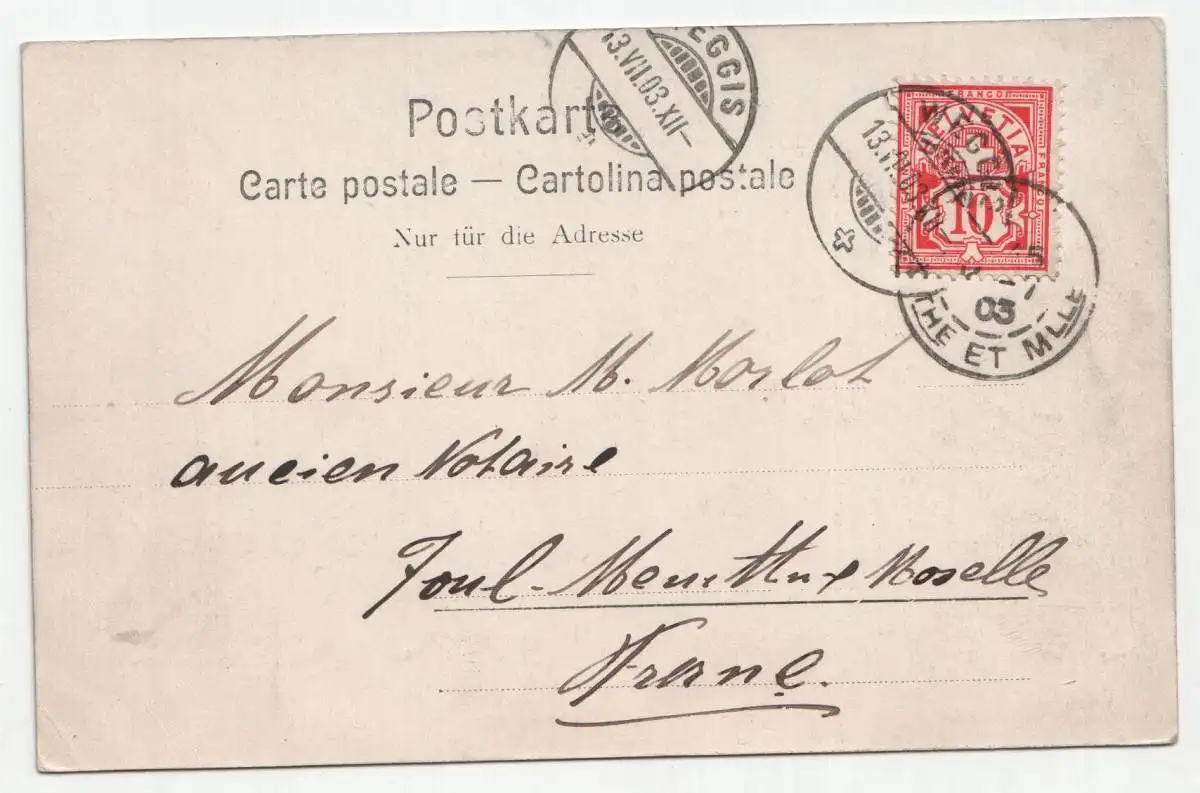 EGGIS
13.VII.03.XII-
Postkarte
Carte postale — Cartolina postale
Nur für die Adresse
FRANCO
FRANCO
HELVETIA
10
13.VII.03.XII-
03
THE ET MLLE
Monsieur M. Morlot
ancien Notaire
Toul - Meurthe Moselle
France.